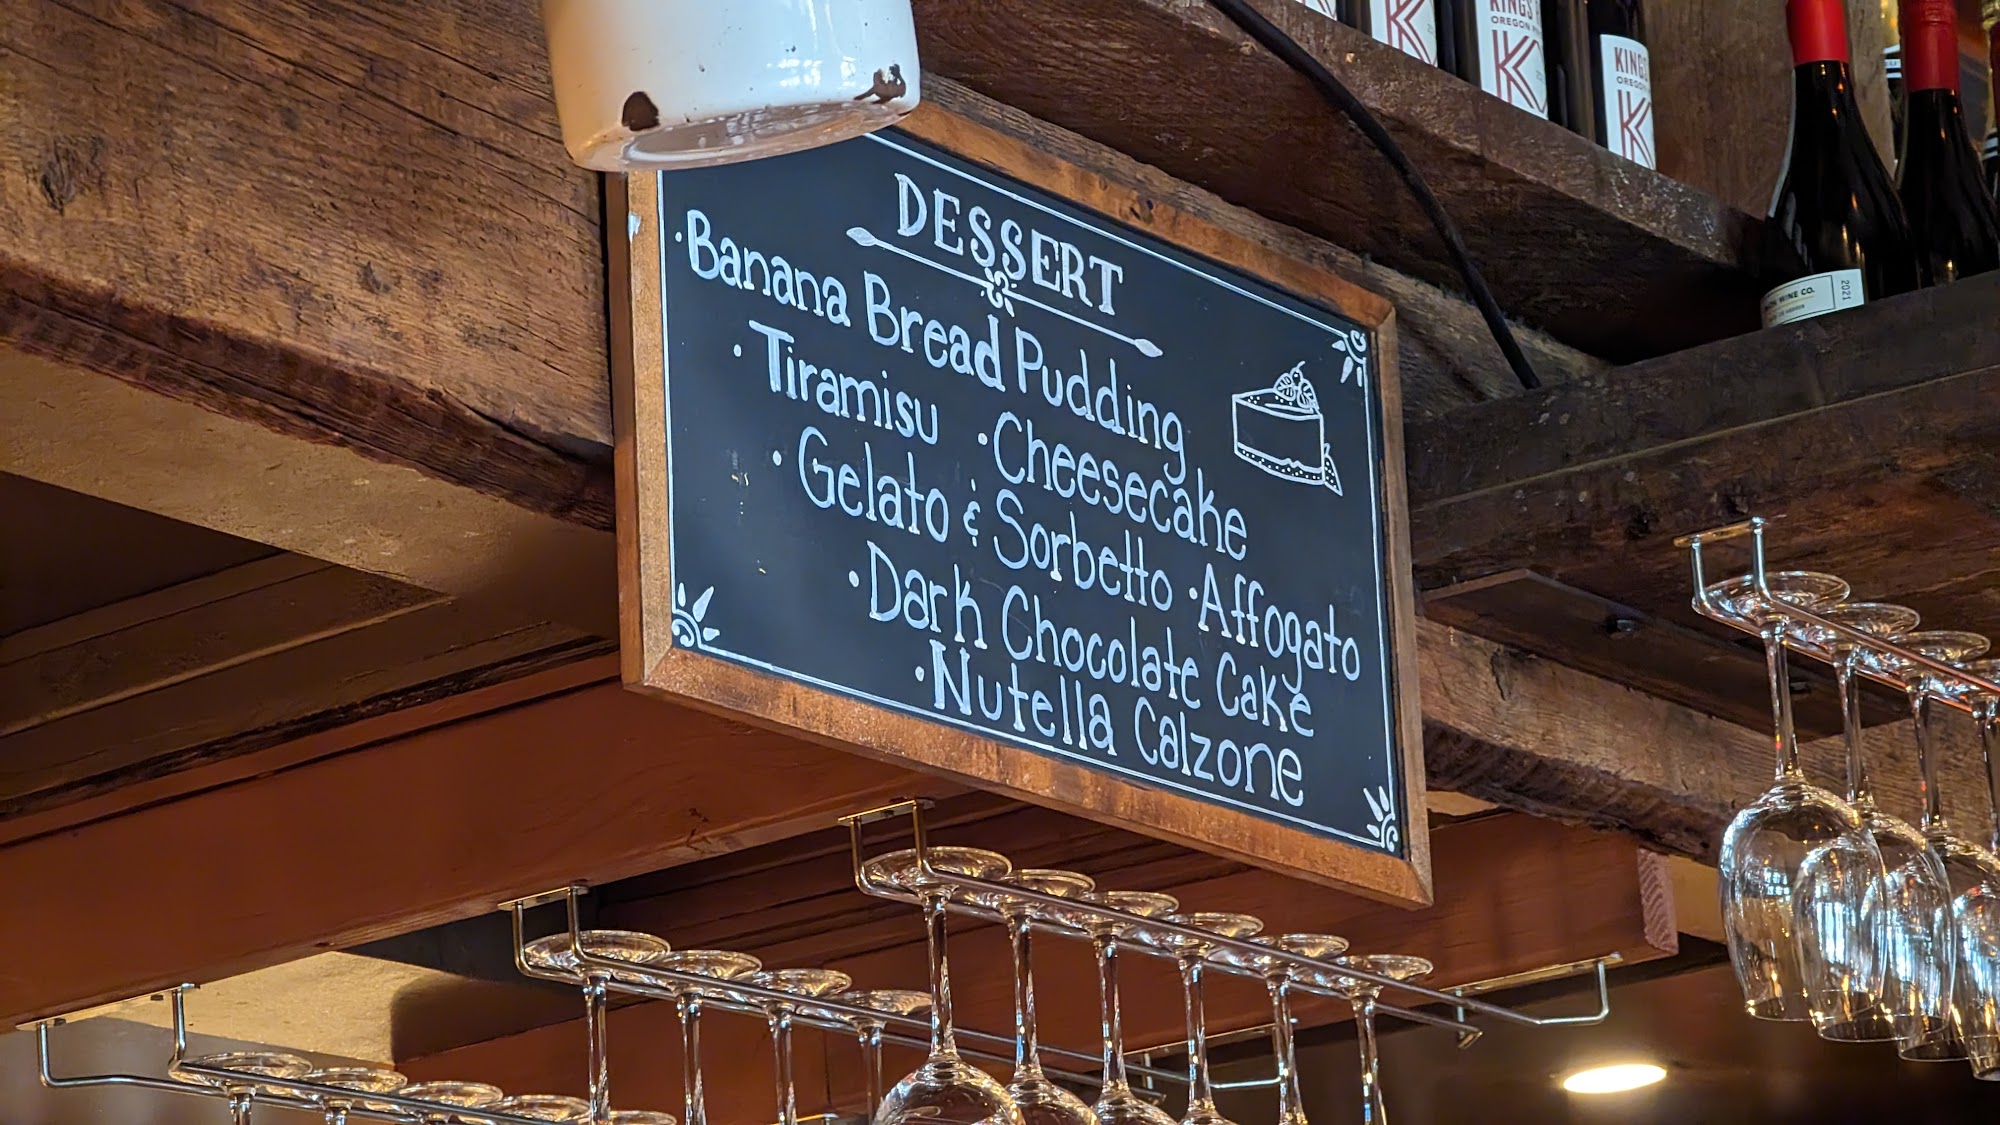 DESSERT
·Banana Bread Pudding
·Tiramisu ·Cheesecake
·Gelato & Sorbetto ·Affogato
·Dark Chocolate Cake
·Nutella Calzone
KINGS
OREGON
K
K
KINGS
OREGON
K
WINE CO.
2021